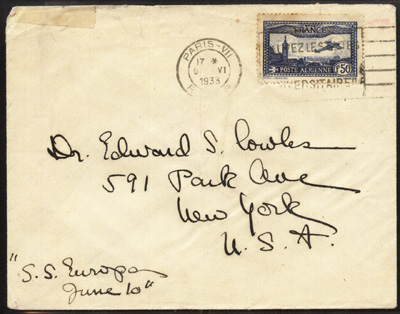 PARIS-VII
17 *
VI
1933
FRANCE
POSTE AERIENNE
1F50
Dr. Edward S. Cowles
591 Park Ave
New York
U.S.A.
"S.S. Europa
June 10"